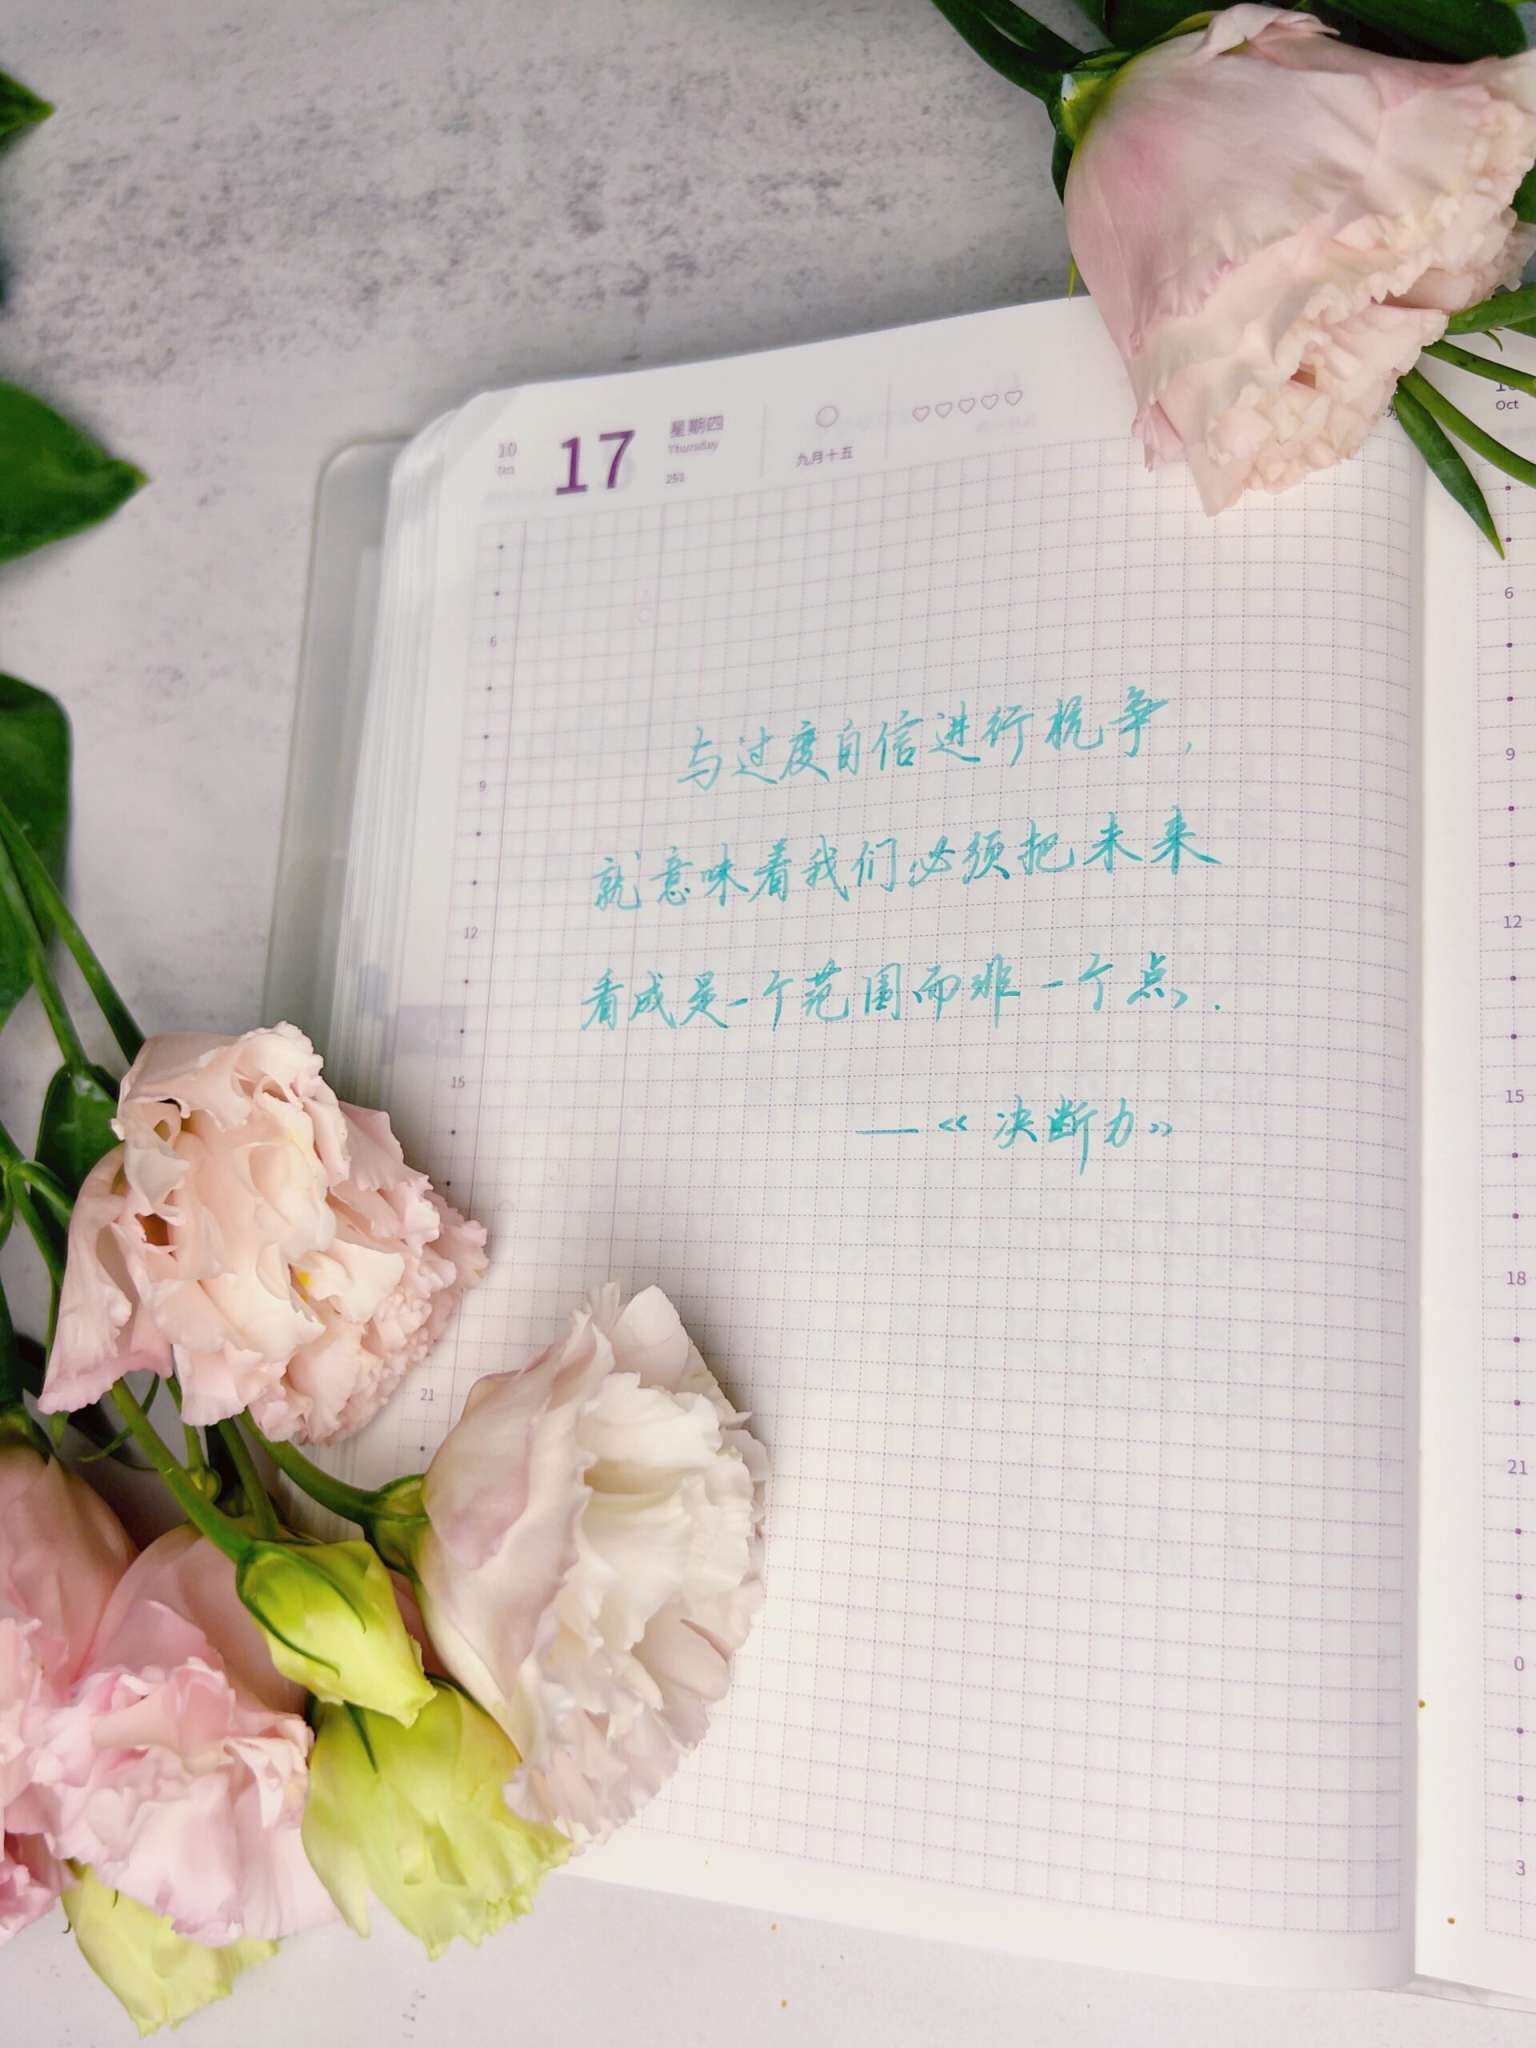 10
Oct
17
星期四
Thursday
九月十五
6
9
12
15
21
与过度自信进行抗争，
就意味着我们必须把未来
看成是一个范围而非一个点.
——《决断力》
Oct
6
9
12
15
18
21
0
3